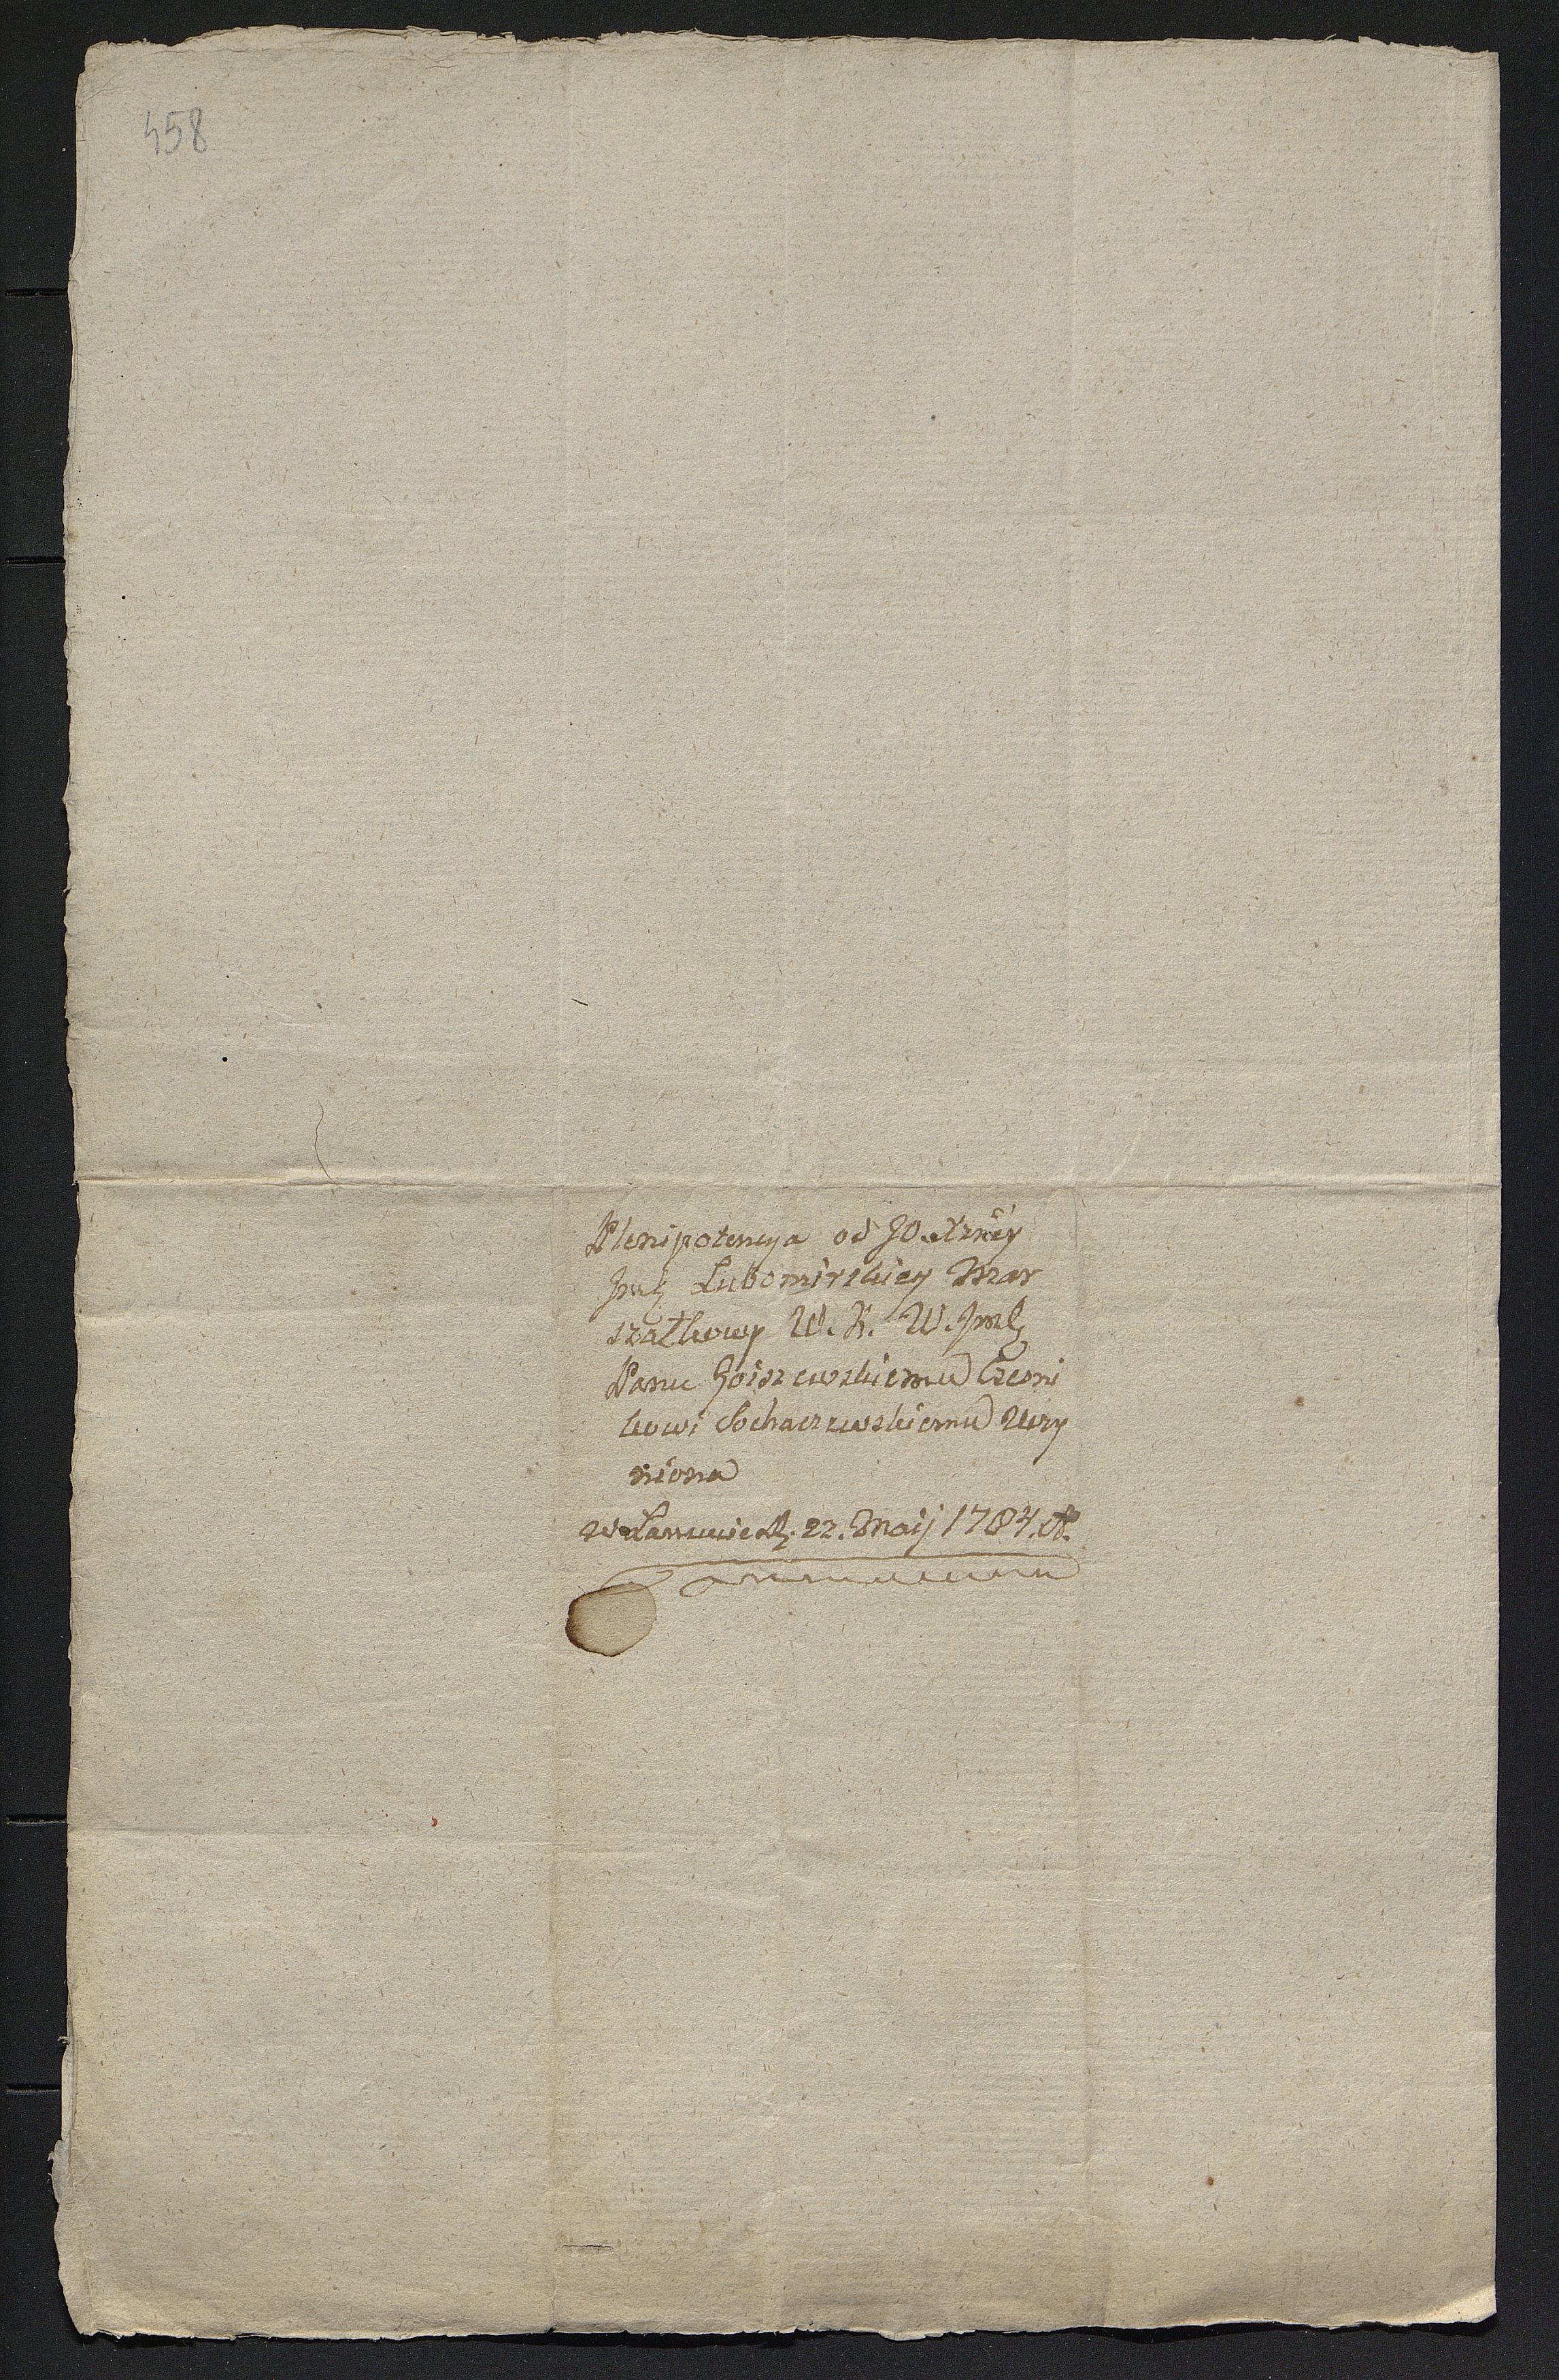 458
Plenipotencya od JO. Xżnéy
Jmći Lubomirskiey Mar
szałkowy W. K. W. Jmći
Panu Goiszewskiemu Czesni
kowi Sochaczewskiemu Uczy
niona
w Łańcucie d. 22. Maij 1784. A.